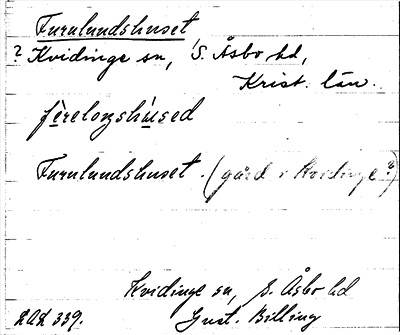 Furulundshuset
? Kvidinge sn, S. Åsbo hd,
Krist. län.
Furulundshuset. (gård i Kvidinge?)
Kvidinge sn, S. Åsbo hd
339. Gust. Billing